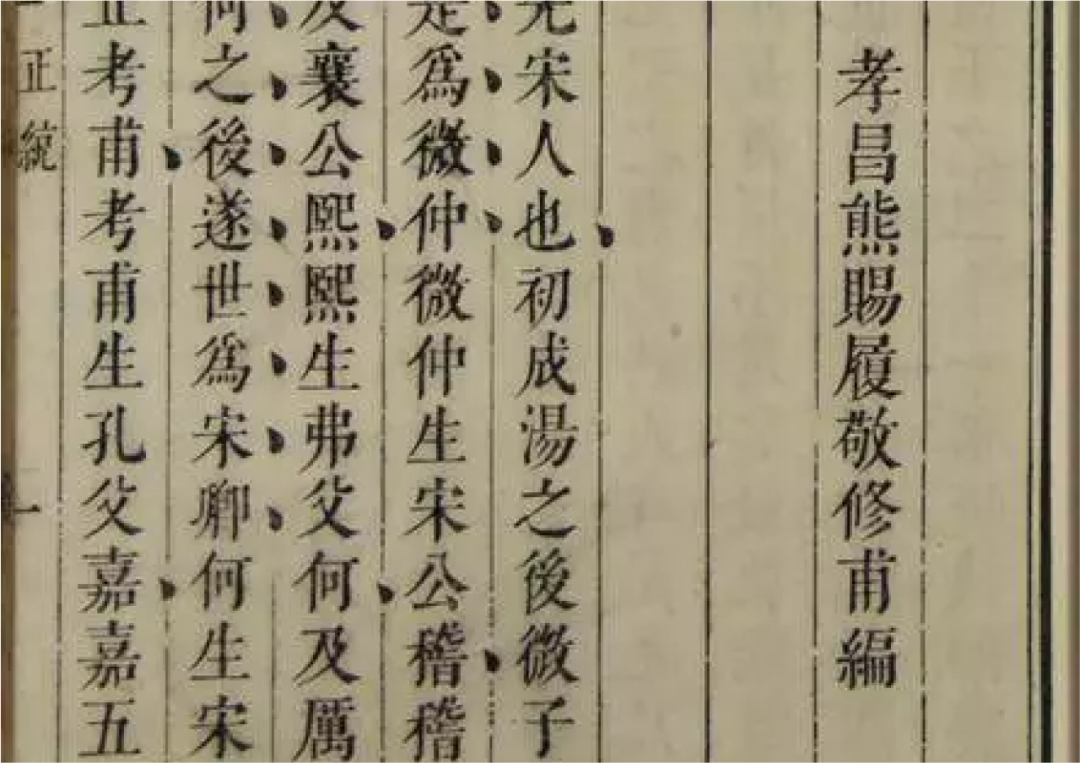 孝昌熊賜履敬修甫編
先宋人也初成湯之後微子
是爲微仲微仲生宋公稽稽
及襄公熙熙生弗父何及厲
何之後遂世爲宋卿何生宋
正考甫考甫生孔父嘉嘉五
正統
一